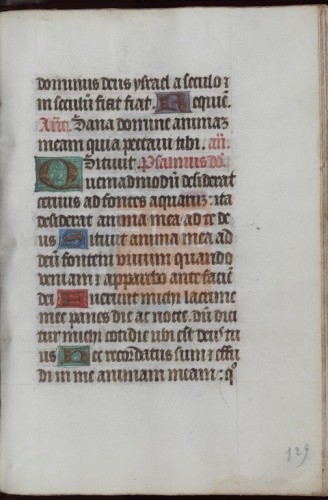 dominus deus ysrael a seculo ⁊
in seculū fiat fiat. Requiē.
Añ. Sana domine animaz
meam quia peccavi tibi. añ.
Sitivit. Psalmus dd.
Quemadmodū desiderat
cervus ad fontes aquarū: ita
desiderat anima mea ad te de
us Sitivit anima mea ad
deū fontem vivum quando
veniam ⁊ apparebo ante facië
dei Fuerunt michi lacrime
mee panes die ac nocte. dū dici
tur michi cotidie ubi est deus tu
us Hec recordatus sum ⁊ effu
di in me animam meam: q°
129